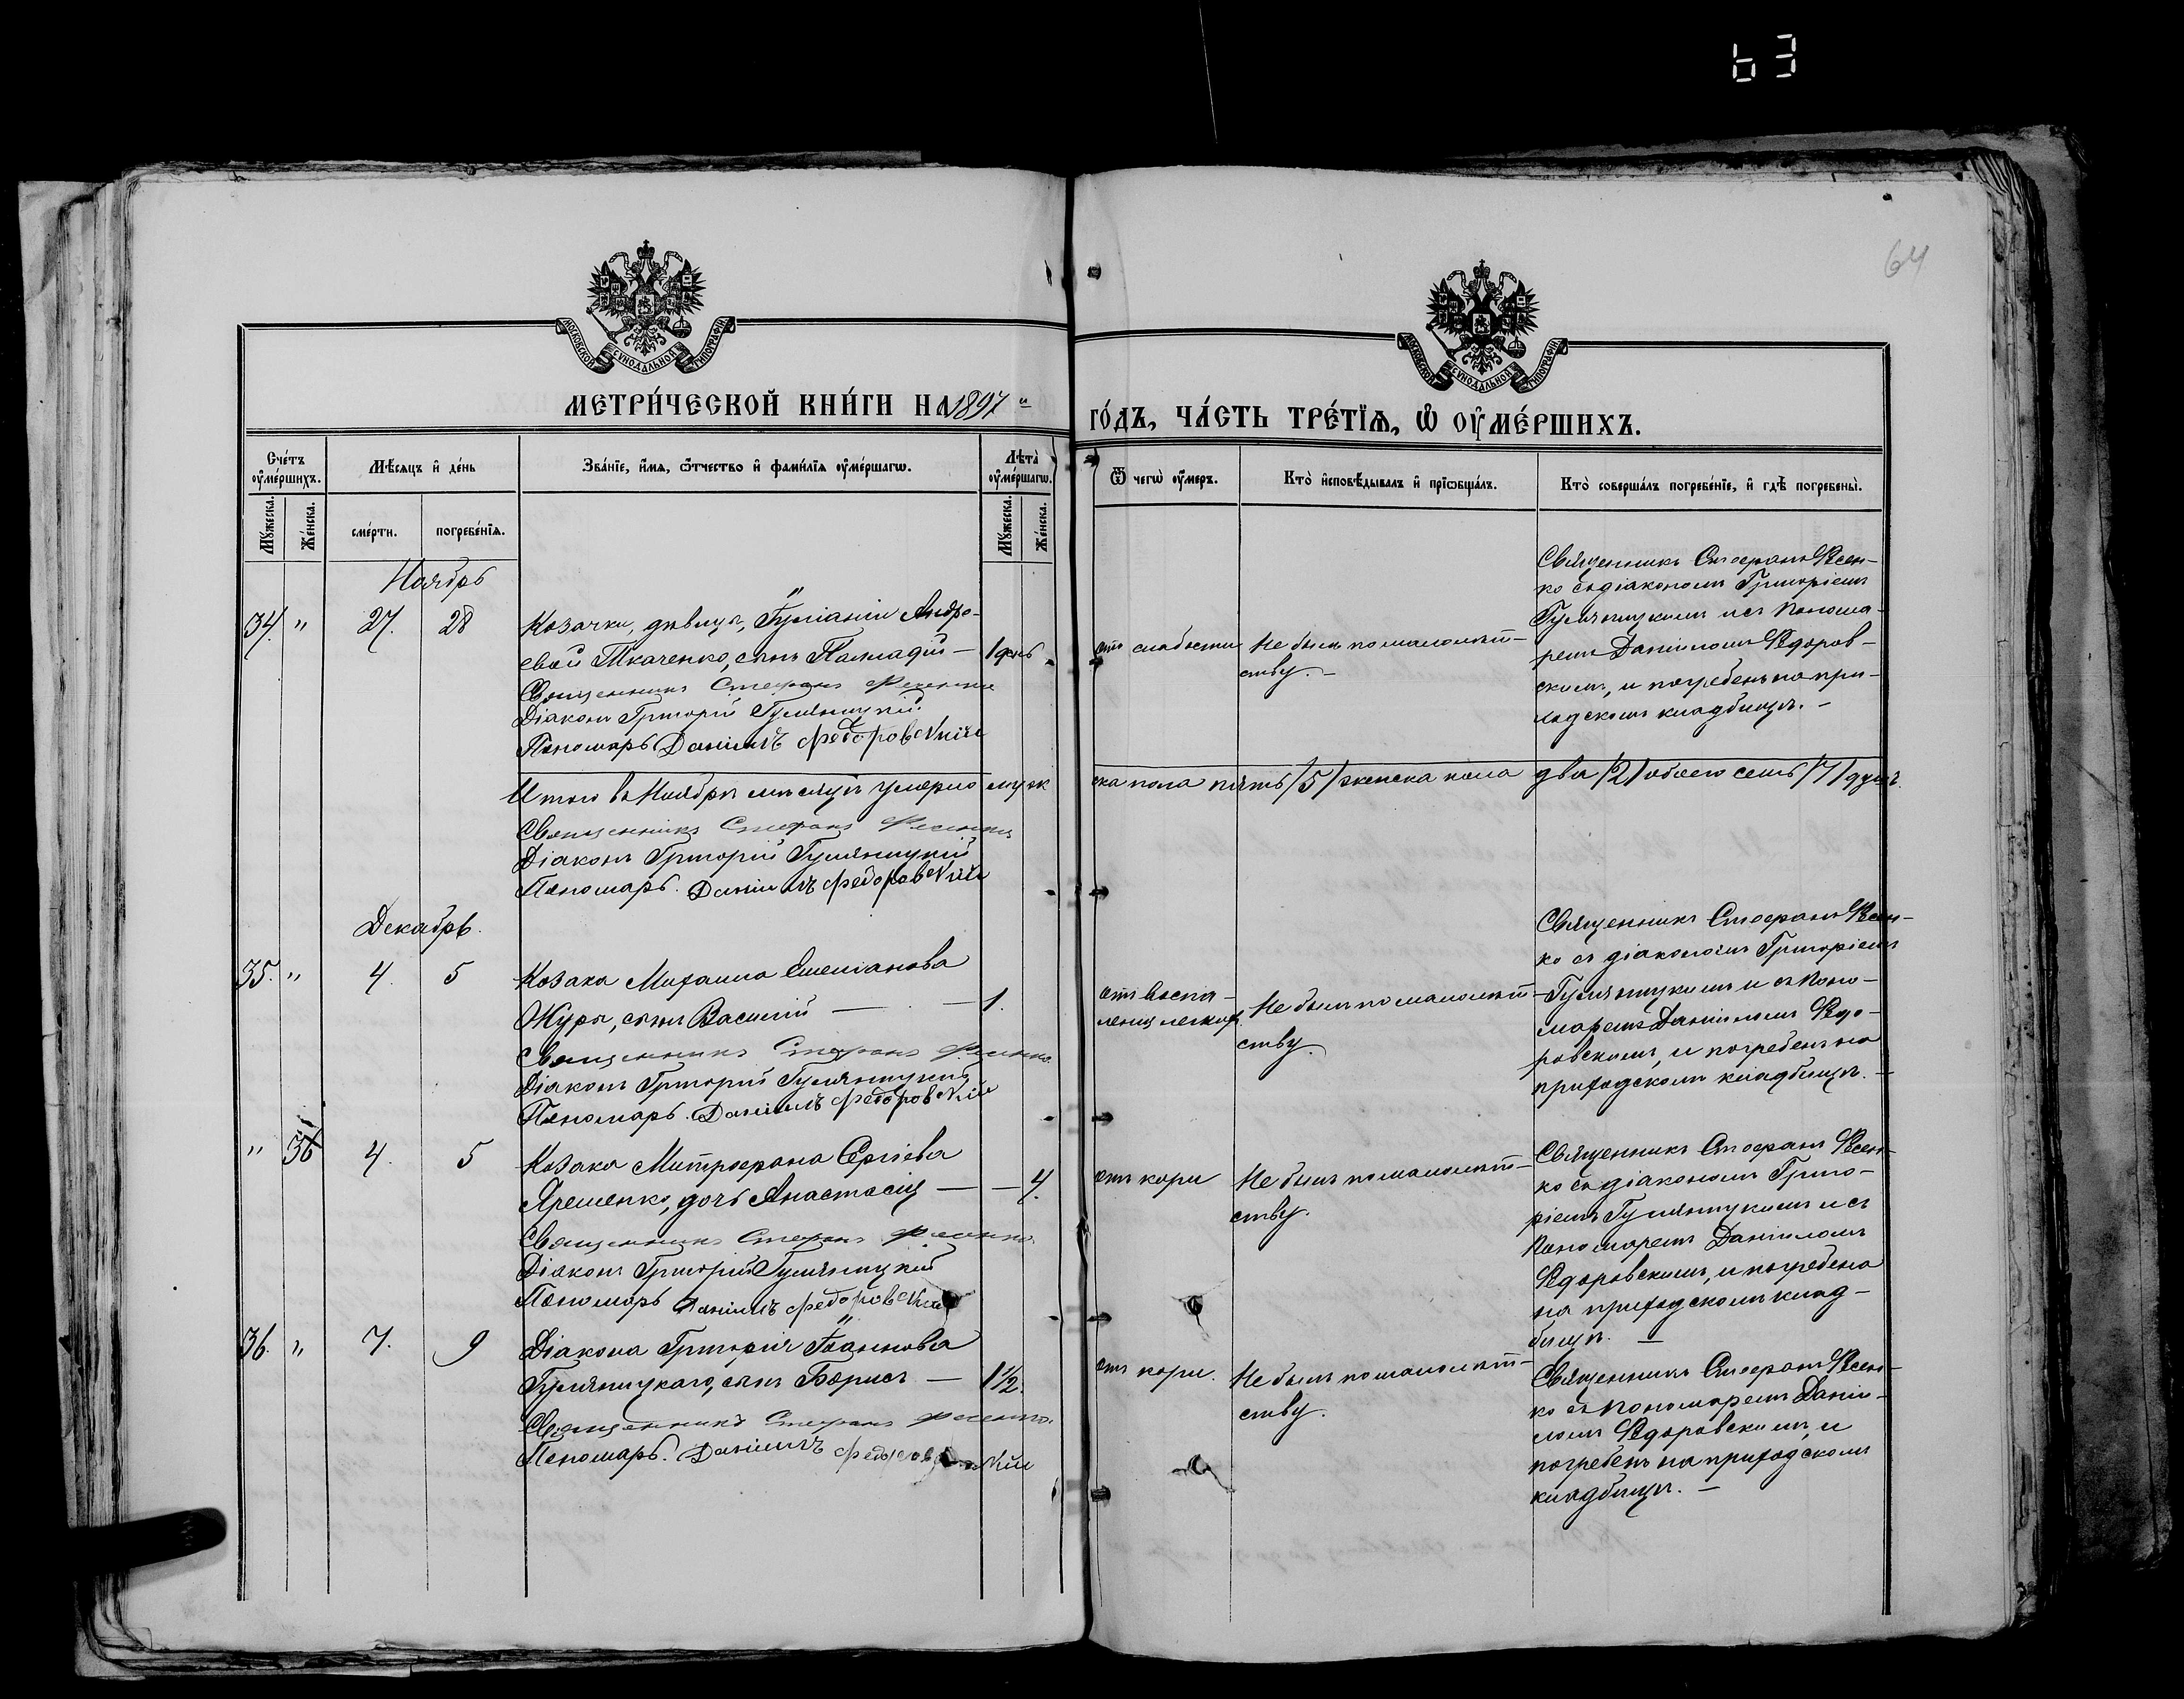 63
64
МОСКОВСКОЙ СѴНОДАЛЬНОЙ ТИПОГРАФІИ
МОСКОВСКОЙ СѴНОДАЛЬНОЙ ТИПОГРАФІИ
МЕТРИ́ЧЕСКОЙ КНИ́ГИ НА 1897 й
ГО́ДЪ, ЧА́СТЬ ТРЕ́ТЇѦ, Ѽ ОУ҆МЕ́РШИХЪ.
Сче́тъ оу҆ме́ршихъ.
Мꙋ́жеска.
Же́нска.
Мѣ́сѧцъ и҆ де́нь
сме́рти.
погребе́нїѧ.
Зва́нїе, и҆́мѧ, ѻ҆́тчество и҆ фами́лїѧ оу҆ме́ршагѡ.
Лѣ́та оу҆ме́ршагѡ.
Мꙋ́жеска.
Же́нска.
Ѿ чегѡ̀ оу҆́меръ.
Кто̀ и҆сповѣ́дывалъ и҆ прїѡбща́лъ.
Кто̀ соверша́лъ погребе́нїе, и҆ гдѣ̀ погребены̀.
Ноябрь
34. " 27. 28
Козачки, дѣвицы, Іуліаніи Андре-
евой Ткаченко, сынъ Палладій — 1 день
Священникъ Стефанъ Фесенко
Діаконъ Григорій Гуляницкій
Пономарь Даніилъ Федоровскій
отъ слабости
Не былъ по малолѣт-
ству. —
Священникъ Стефанъ Фесен-
ко съ діакономъ Григоріемъ
Гуляницкимъ и съ Понома-
ремъ Даніиломъ Ѳедоров-
скимъ, и погребенъ на при-
ходскомъ кладбищѣ. —
Итого въ Ноябрѣ мѣсяцѣ умерло муж
ска пола пять /5/ женска пола два /2/ обоего семь /7/ душъ.
Священникъ Стефанъ Фесенко
Діаконъ Григорій Гуляницкій
Пономарь. Даніилъ Федоровскій
Декабрь.
35. " 4. 5
Козака Михаила Емеліанова
Журы, сынъ Василій — — 1.
Священникъ Стефанъ Фесенко
Діаконъ Григорій Гуляницкій
Пономарь. Даніилъ Федоровскій
отъ воспа-
ленія легкихъ.
Не былъ по малолѣт-
ству.
Священникъ Стефанъ Фесен-
ко съ діакономъ Григоріемъ
Гуляницкимъ и съ Поно-
маремъ Даніиломъ Ѳедо-
ровскимъ, и погребенъ на
приходскомъ кладбищѣ. —
" 36 4. 5
Козака Митрофана Сергіева
Яременко, дочь Анастасія — — 4.
Священникъ Стефанъ Фесенко
Діаконъ Григорій Гуляницкій
Пономарь Даніилъ Федоровскій
отъ кори
Не былъ по малолѣт-
ству.
Священникъ Стефанъ Фесен-
ко съ діакономъ Григо-
ріемъ Гуляницкимъ и съ
Пономаремъ Даніиломъ
Ѳедоровскимъ, и погребена
на приходскомъ клад-
бищѣ. —
36. " 7. 9
Діакона Григорія Іоаннова
Гуляницкаго, сынъ Борисъ — 1½.
Священникъ Стефанъ Фесенко
Пономарь. Даніилъ Федоровскій
отъ кори.
Не былъ по малолѣт-
ству.
Священникъ Стефанъ Фесен-
ко съ Пономаремъ Даніи-
ломъ Ѳедоровскимъ, и
погребенъ на приходскомъ
кладбищѣ. —